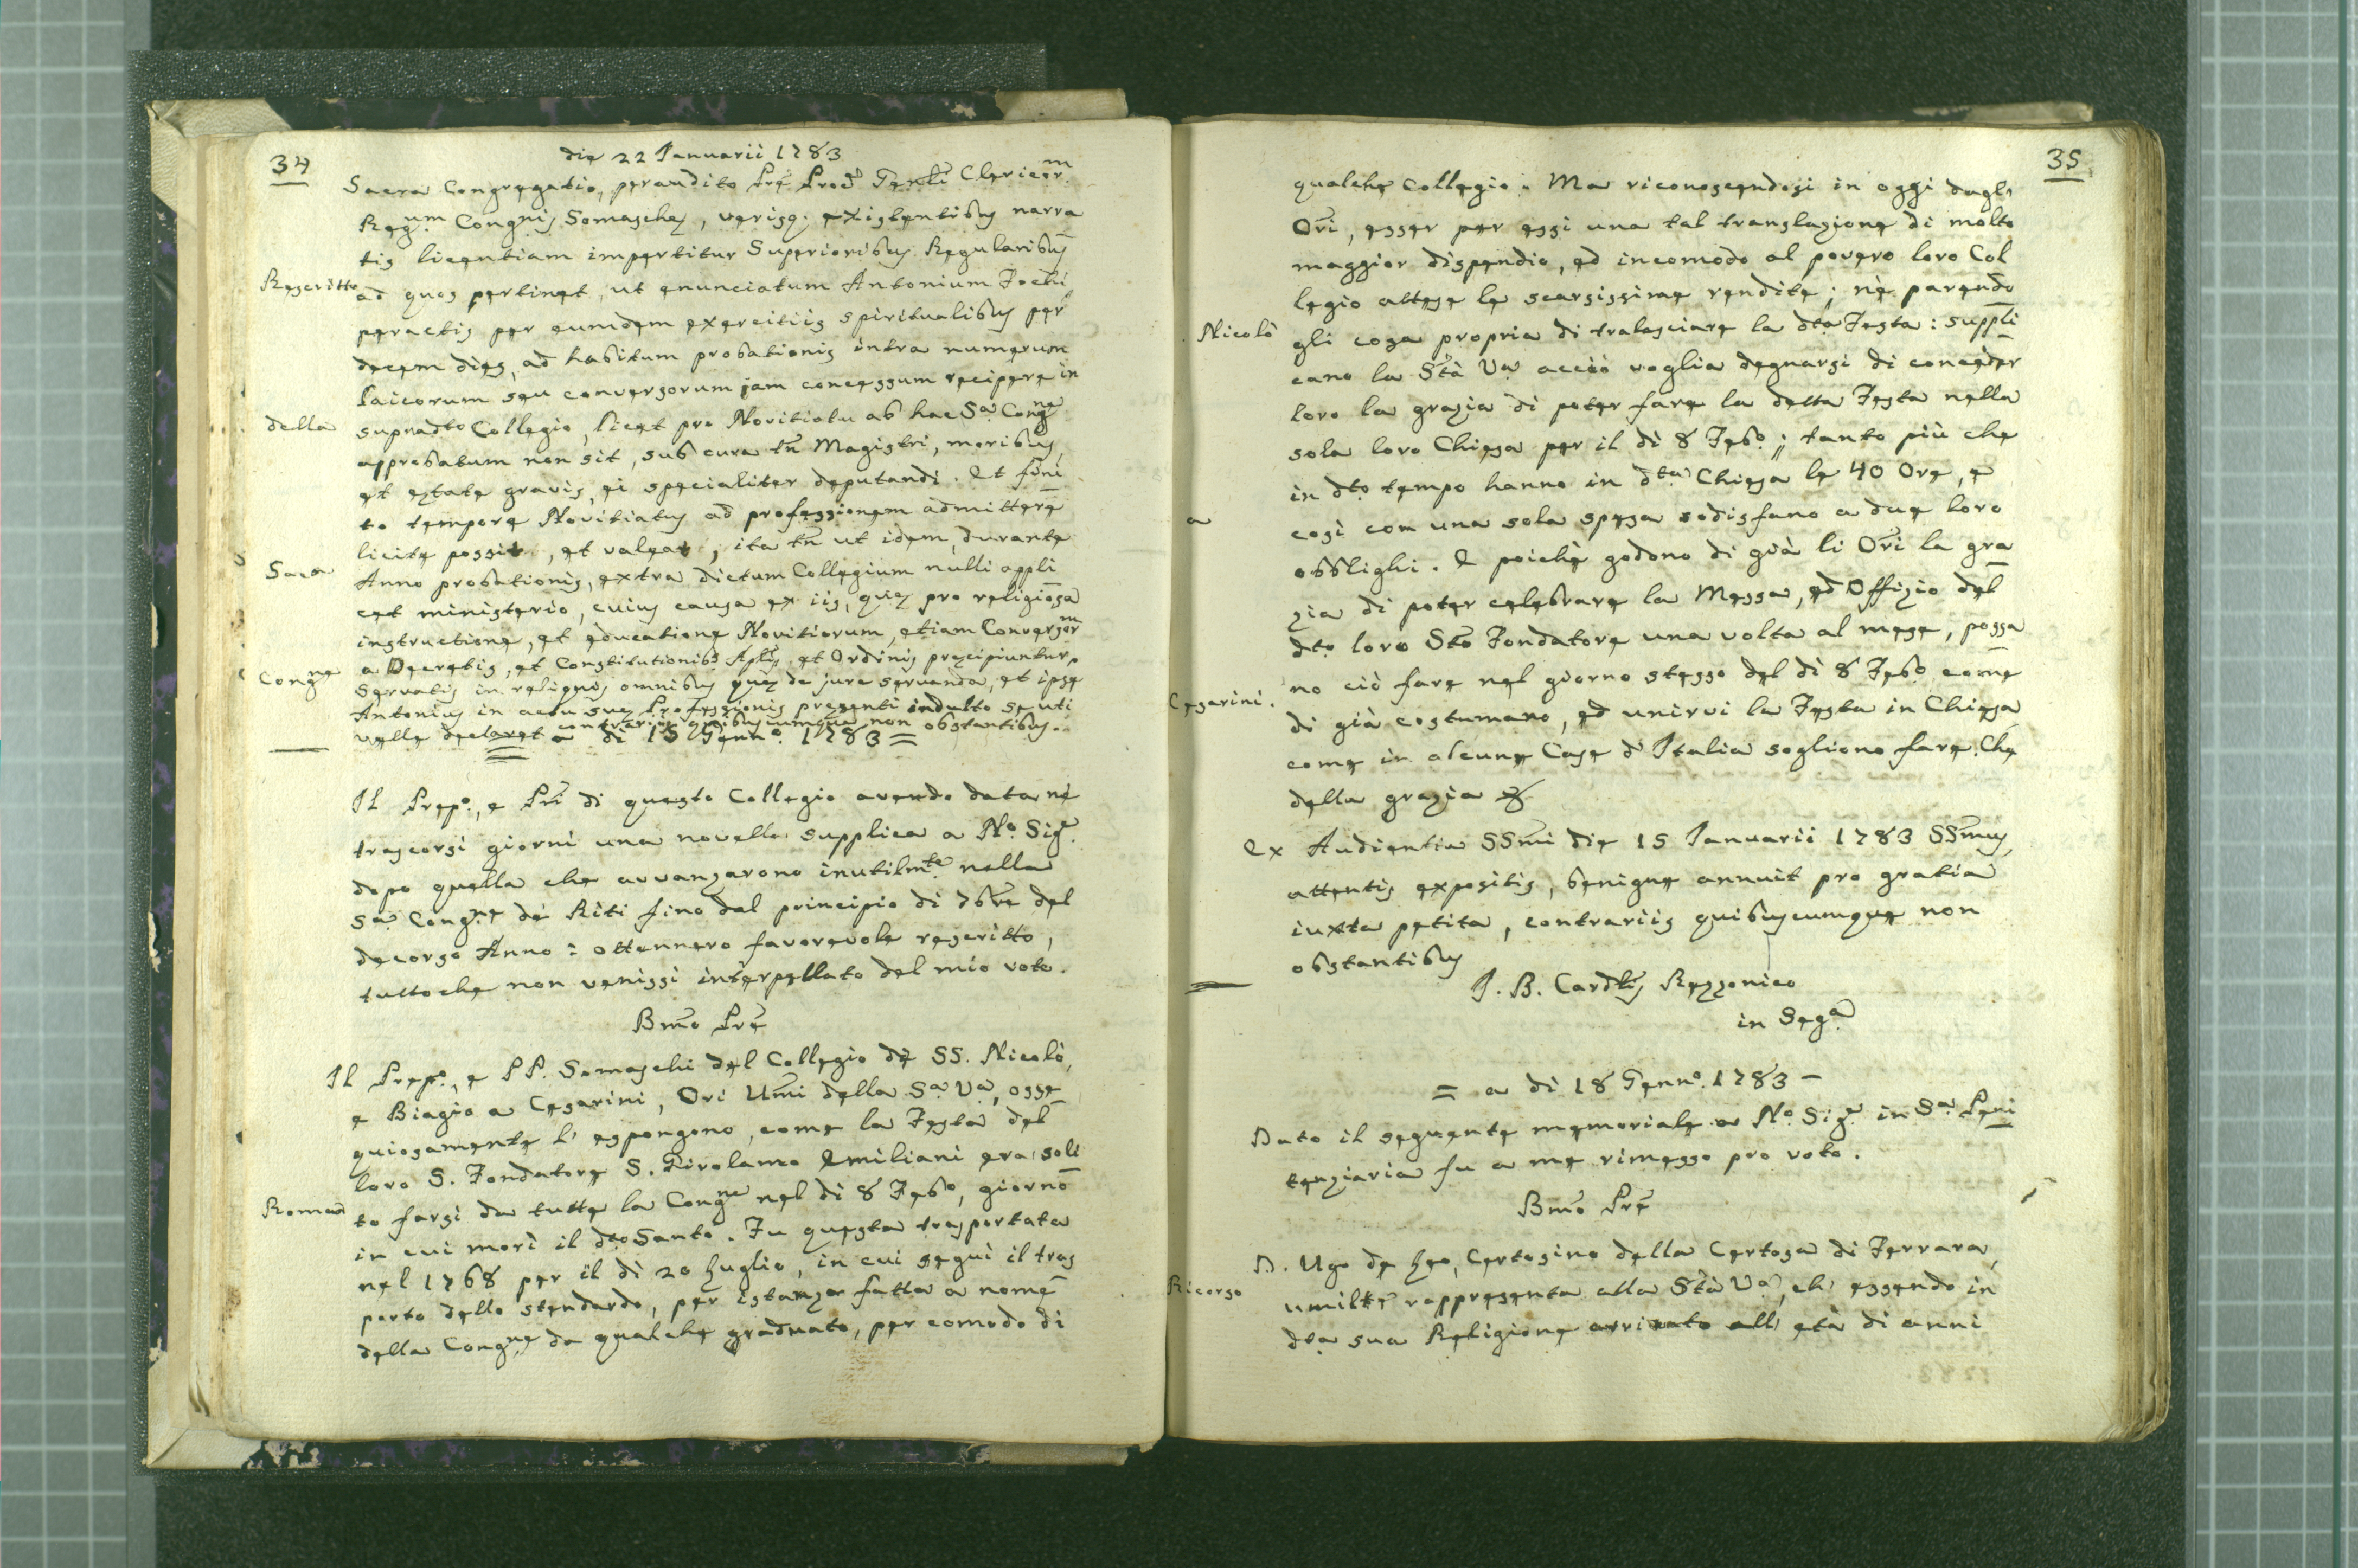 34
die 22 Januarii 1783
Sacra Congregatio, peraudito Pre Prōe Genli Clericorm
Regum Congnis Somaschae, verisq. existentibus narra
tis licentiam impertitur Superioribus Regularibus
Rescritto
ad quos pertinet, ut enunciatum Antonium Fochi
peractis per eumdem exercitiis spiritualibus per
decem dies, ad habitum probationis intra numerum
Laicorum seu conversorum jam concessum recipere in
della
supradto Collegio, licet pro Novitiatu ab hac Sa Congne
approbatum non sit, sub cura tn Magistri, moribus,
et aetate gravis, ei specialiter deputandi. Et fini
to tempore Novitiatus ad professionem admittere
licite possit, et valeat, ita tn ut idem, durante
Sacra
Anno probationis, extra dictum Collegium nulli appli
cet ministerio, cuius causa ex iis, quae pro religiosa
instructione, et educatione Novitiorum, etiam Conversorm
a Decretis, et Constitutionibs Aplis, et Ordinis praecipiuntur,
Congne
Servatis in reliquis omnibus quae de jure servanda, et ipse
Antonius in actu suae Professionis praesenti indulto se uti
velle declaret contrariis quibuscumque non obstantibus.
= a di 15 Genno. 1783 =
Il Prepo., e Pri di questo Collegio avendo data nè
trascorsi giorni una novella supplica a No. Sige.
dopo quella che avvanzarono inutilmte. nella
Sa. Congne de Riti fino dal principio di 7bre del
decorso Anno: ottennero favorevole rescritto,
tuttoche non venissi interpellato del mio voto.
Bmo Pre
Il Prepo., e PP. Somaschi del Collegio de SS. Nicolò,
e Biagio a Cesarini, Ori Umi della Sa. Va., osse
quiosamente l' espongono, come la Festa del
loro S. Fondatore S. Girolamo Emiliani era soli
Roma
to farsi da tutta la Congne nel di 8 Febo, giorno
in cui morì il dto Santo. Fu questa trasportata
nel 1768 per il di 20 Luglio, in cui seguì il tras
porto dello stendardo, per istanza fatta a nome
della Congne da qualche graduato, per comodo di
35
qualche Collegio. Ma riconoscendosi in oggi dagl'
Ori, esser per essi una tal translazione di molto
maggior dispendio, ed incomodo al povero loro Col
legio attese le scarsissime rendite; nè parendo
Nicolò
gli cosa propria di tralasciare la dta Festa: suppli
cano la Stà Va. acciò voglia degnarsi di conceder
loro la grazia di poter fare la detta Festa nella
sola loro Chiesa per il dì 8 Febo.; tanto più che
in dto tempo hanno in dta Chiesa le 40 Ore, e
a
così con una sola spesa sodisfano a due loro
obblighi. E poichè godono di già li Ori la gra
zia di poter celebrare la Messa, ed Offizio del
dto loro Sto Fondatore una volta al mese, possa
no ciò fare nel giorno stesso del dì 8 Febo. come
Cesarini.
di già costumano, ed unirvi la Festa in Chiesa
come in alcune Case d' Italia sogliono fare. Che
della grazia &
Ex Audientia SSmi die 15 Januarii 1783 SSmus
attentis expositis, benigne annuit pro gratia
iuxta petita, contrariis quibuscumque non
obstantibus
J. B. Cardlis Rezzonico
in Sega.
= a di 18 Genno. 1783 -
Dato il seguente memoriale a No. Sige. in Sa. Peni
tenziaria fu a me rimesso pro voto.
Bmo Pre
D. Ugo de Leo, Certosino della Certosa di Ferrara,
Ricorso
umilte rappresenta alla Stà Va., ch' essendo in
dta sua Religione arrivato all' età di anni